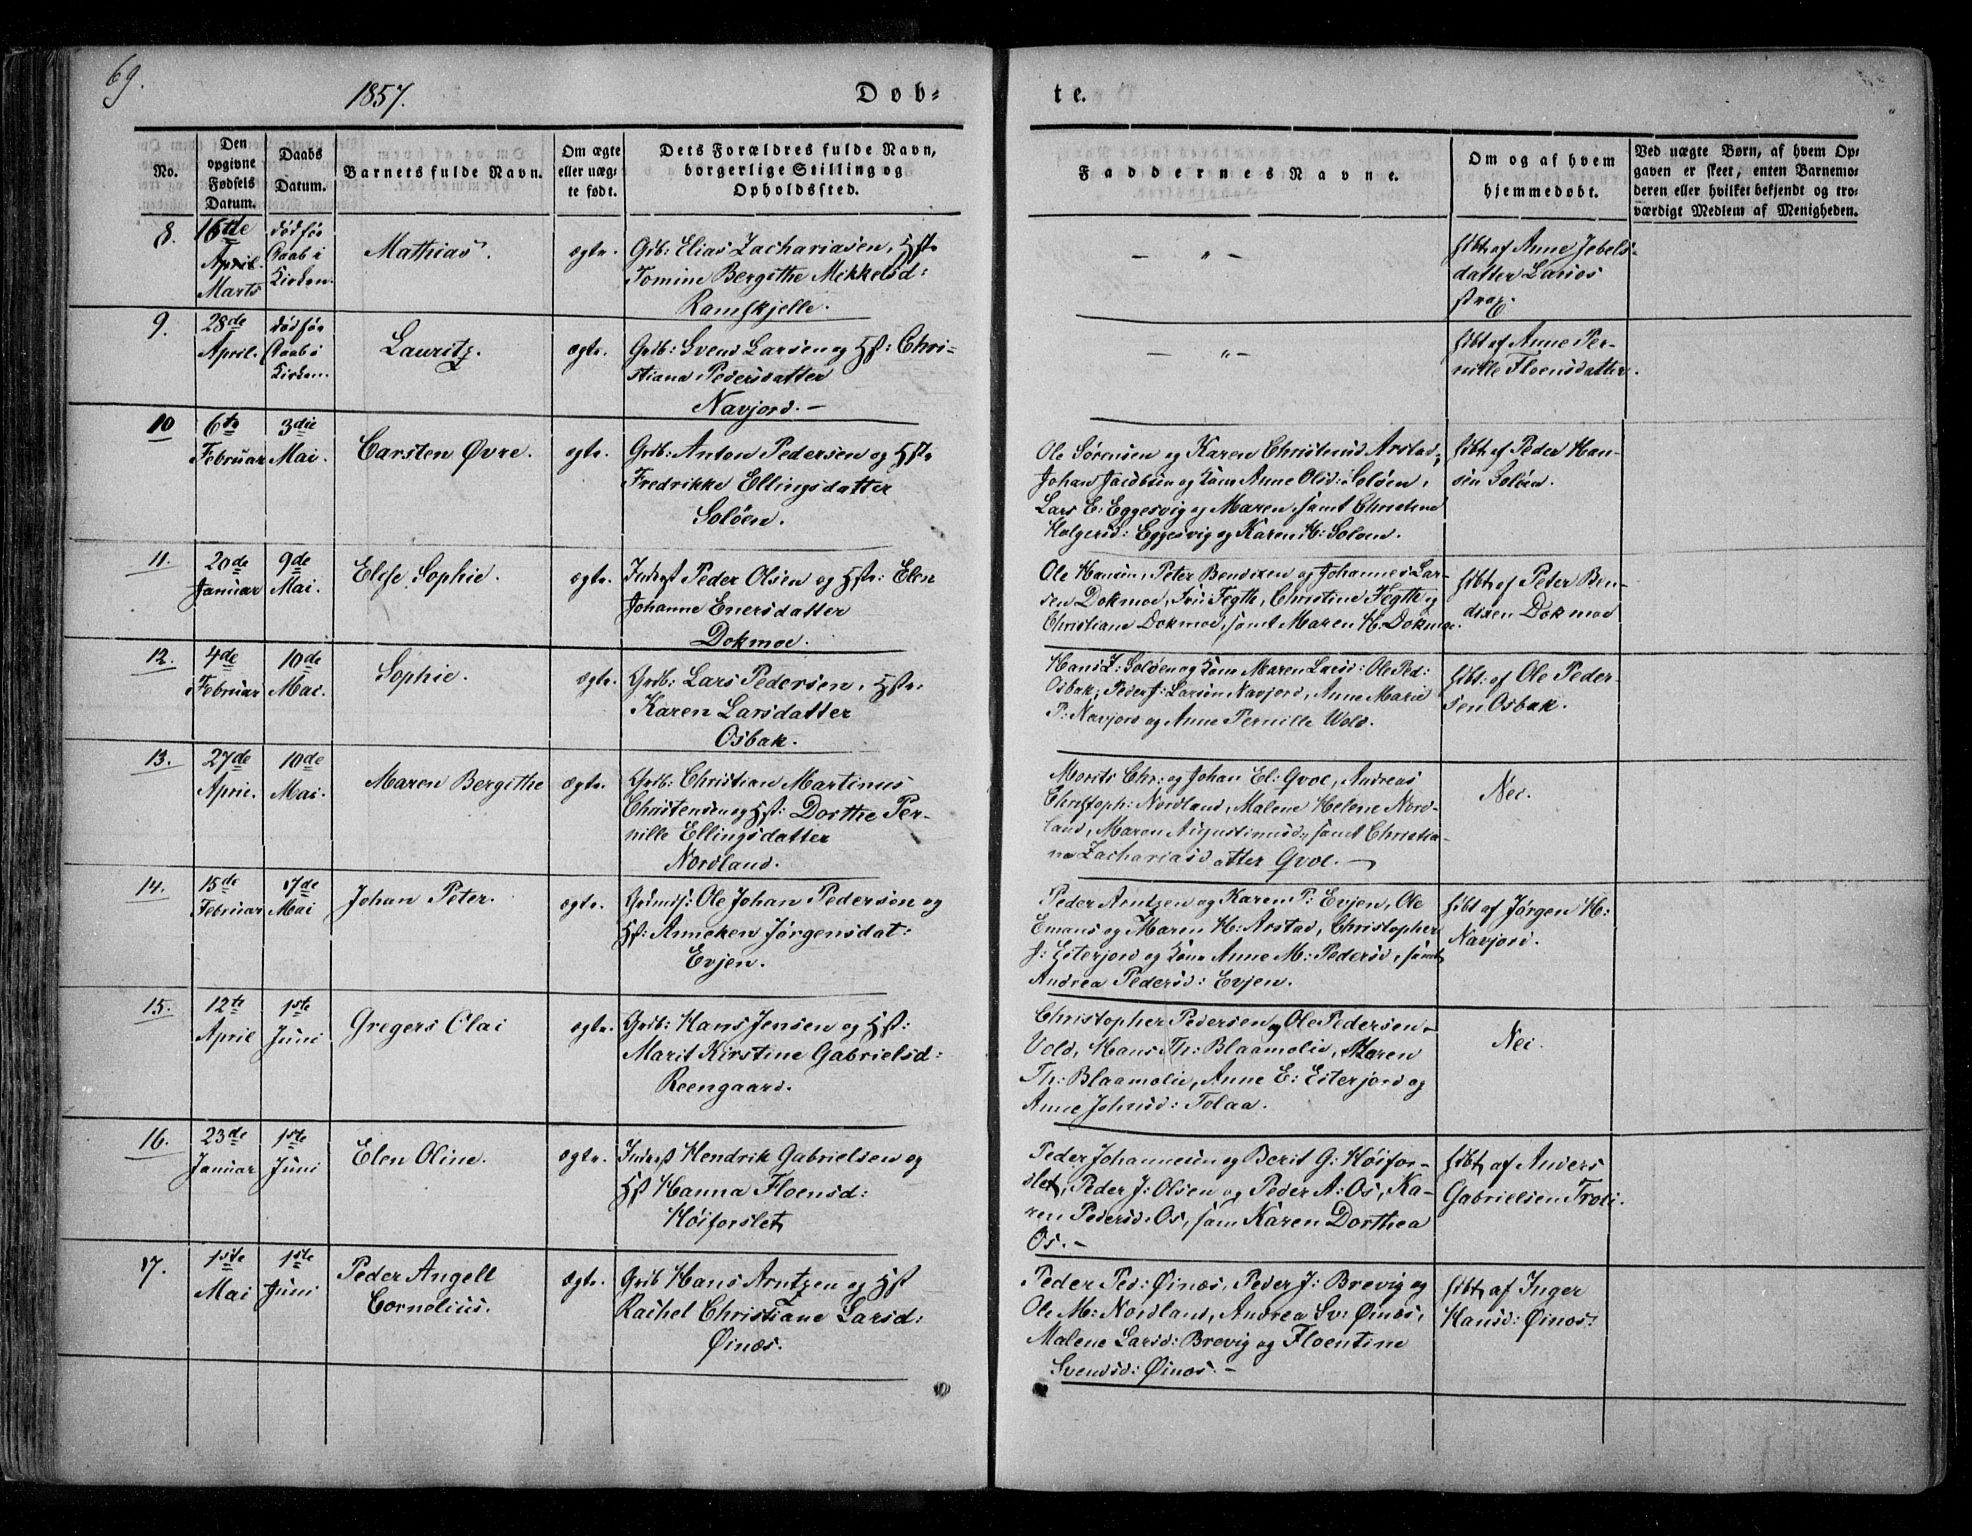 69.
1857.
Døb-
te.
No.
Den opgivne Fødsels Datum.
Daabs Datum.
Barnets fulde Navn.
Om ægte eller uægte født.
Dets Forældres fulde Navn, borgerlige Stilling og Opholdssted.
Faddernes Navne.
Om og af hvem hjemmedøbt.
Ved uægte Børn, af hvem Opgaven er skeet, enten Barnemoderen eller hvilket bekjendt og troværdigt Medlem af Menigheden.
8.
16de
April
Marts
død før
Daab i
Kirken.
Mathias.
ægte.
Grdb: Elias Zachariasen, Hst:
Tomine Bergithe Mikkelsd:
Ramskjelle.
— " —
hjbt. af Anne Jebels-
datter Larsos
strax.
9.
28de
April.
død før
Daab i
Kirken.
Lauritz.
ægte.
Grdb: Svend Larsen og Hst: Chri-
stiana Pedersdatter
Navjord. —
— " —
hjbt af Anne Per-
nille Floensdatter.
10
6te
Februar
3die
Mai.
Carsten Øvre.
ægte.
Grdb: Anton Pedersen og Hst:
Fredrikke Ellingsdatter
Soløen.
Ole Sørensen og Karen Christensd Arstad,
Johan Jacobsen og Kone Anne Olsd: Soløen,
Lars E: Eggesvig og Maren, samt Christine
Holgersd: Eggesvig og Karen H: Soløen.
hjbt af Peder Han-
sen Soløen.
11.
20de
Januar
9de
Mai.
Elise Sophie.
ægte.
Inderst Peder Olsen og Hst: Elen
Johanne Enersdatter
Dokmoe.
Ole Hansen, Peter Bendixen og Johannes Lar-
sen Dokmoe, Fegth, Christine Fegth og
Christiane Dokmoe, samt Maren H. Dokmoe.
hjbt af Peter Ben-
dixen Dokmoe
12.
4de
Februar
10de
Mai.
Sophie.
ægte.
Grdb: Lars Pedersen, Hst:
Karen Larsdatter
Osbak.
Hans J: Soløen og Kone Maren Larsd: Ole Ped:
Osbak, Peder J: Larsen Navjord, Anne Marie
P: Navjord og Anne Pernille Vold.
hjbt: af Ole Peder-
sen Osbak.
13.
27de
April.
10de
Mai.
Maren Bergithe
ægte.
Grdb: Christian Martinus
Christensen og Hst: Dorthe Per-
nille Ellingsdatter
Nordland.
Morits Chr: og Johan El: Qvoe, Andreas
Christoph: Nordland, Malene Helene Nord-
land, Maren Augustinusd, samt Christia-
na Zachariasdatter Qvoe. —
Nei.
14.
15de
Februar
17de
Mai
Johan Peter.
ægte.
Ole Johan Pedersen og
Hst: Anneken Jørgensdat:
Evjen.
Peder Arntzen og Karen P: Evjen, Ole
Emans og Maren H: Arstad, Christopher
J: Eiterjord og Kone Anne M: Pedersd, samt
Andrea Pedersd: Evjen.
hjbt af Jørgen H:
Navjord.
15.
12te
April
1ste
Juni
Gregers Olai
ægte.
Grdb: Hans Jensen og Hst:
Marit Kirstine Gabrielsd:
Reengaard.
Christopher Pedersen og Ole Pedersen
Vold, Hans Th: Blaamolie, Maren
Th: Blaamolie, Anne E: Eiterjord og
Anne Johnsd: Tolaa.
Nei.
16.
23de
Januar
1ste
Juni
Elen Oline.
ægte.
Inderst Hendrik Gabrielsen og
Hst Hanna Floensd:
Høiforslet
Peder Johannesen og Berit G: Høifor-
slet, Peder J: Olsen og Peder A: Os, Ka-
ren Pedersd: Os, samt Karen Dorthea
Os. —
hjbt af Anders
Gabrielsen Troli.
17.
1ste
Mai
1ste
Juni
Peder Angell
Cornelius.
ægte.
Grdb Hans Arntzen og Hst
Rachel Christiane Larsd:
Øinæs.
Peder Ped: Øinæs, Peder J: Brevig og
Ole M: Nordland, Andrea Sv: Øinæs,
Malene Larsd: Brevig og Floentine
Svendsd: Øinæs. —
hjbt af Inger
Hansd: Øinæs.